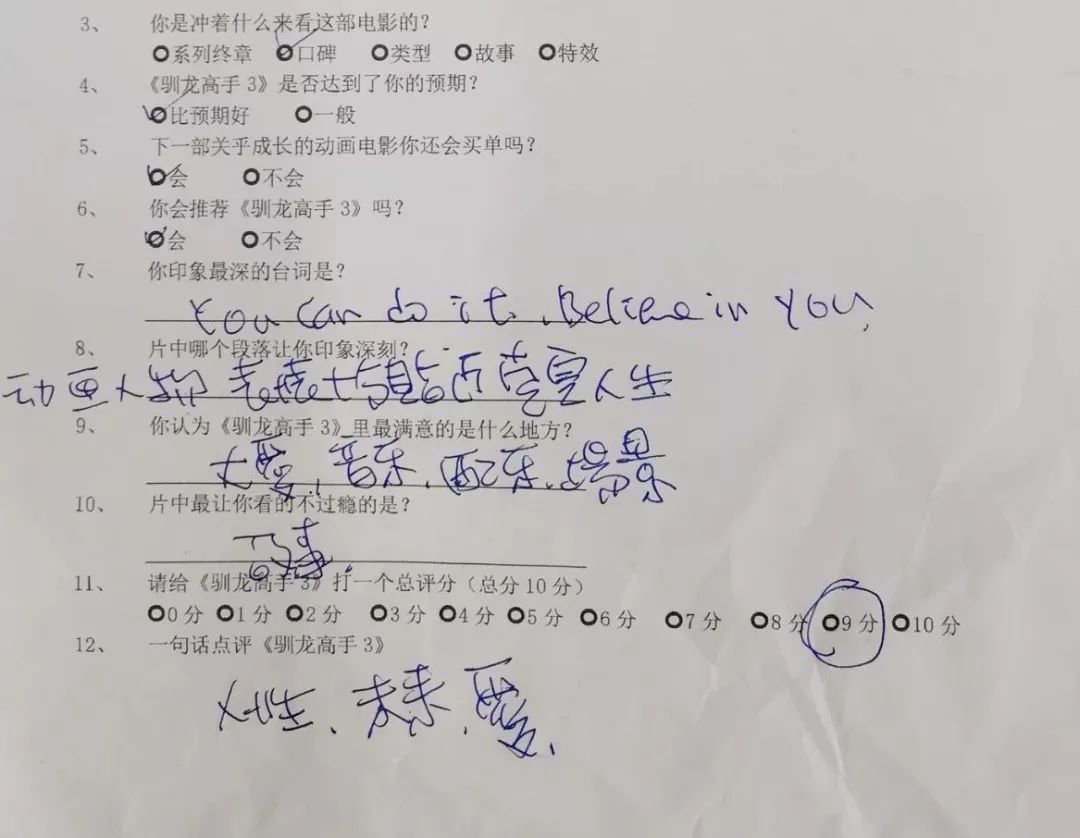 3、 你是冲着什么来看这部电影的？
系列终章 口碑 类型 故事 特效
4、 《驯龙高手3》是否达到了你的预期？
比预期好 一般
5、 下一部关乎成长的动画电影你还会买单吗？
会 不会
6、 你会推荐《驯龙高手3》吗？
会 不会
7、 你印象最深的台词是？
You can do it. Believe in you,
8、 片中哪个段落让你印象深刻？
动画人物 人生
9、 你认为《驯龙高手3》里最满意的是什么地方？
大爱，音乐，配乐，场景
10、 片中最让你看的不过瘾的是？
故事
11、 请给《驯龙高手3》打一个总评分（总分10分）
0分 1分 2分 3分 4分 5分 6分 7分 8分 9分 10分
12、 一句话点评《驯龙高手3》
人性、未来、爱、